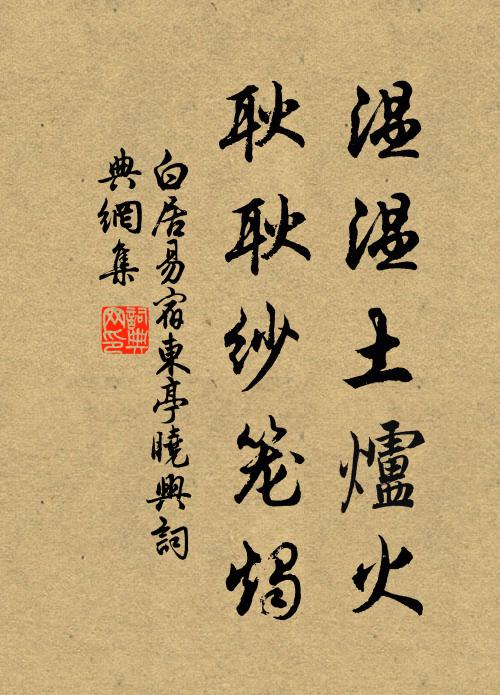 温温土爐火
耿耿紗笼燭
白居易宿東亭曉興詞
典網集
詞典
网印